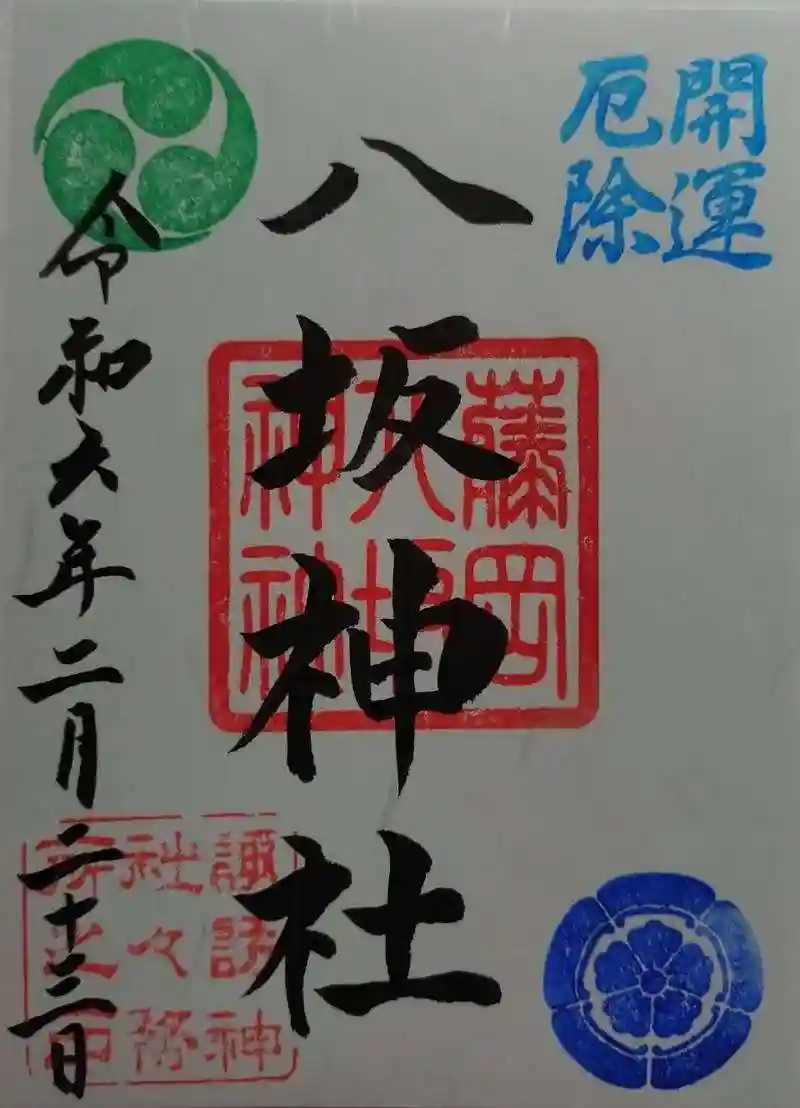 開運
厄除
八坂神社
藤岡
八坂
神社
令和六年二月二十三日
諏訪神
社々務
所之印